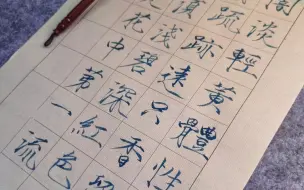 淡輕黃體性
疏跡遠只香
須淺碧深紅色
花中第一流